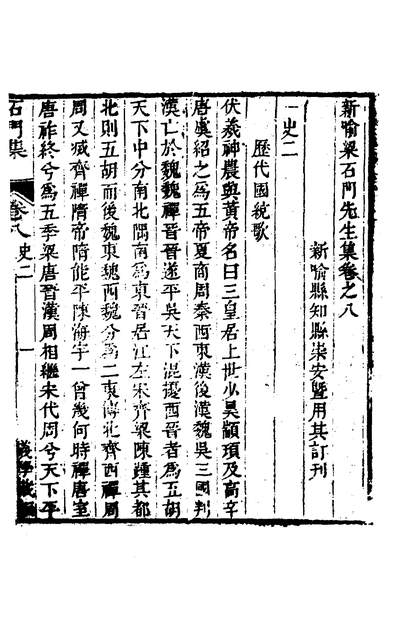 新喻梁石門先生集卷之八
新喻縣知縣崇安暨用其訂刊
史二
歷代國統歌
伏羲神農與黃帝名曰三皇居上世少昊顓頊及高辛
唐虞紹之為五帝夏商周秦西東漢後漢魏吳三國判
漢亡於魏魏禪晉晉遂平吳天下混擾西晉者為五胡
天下中分南北隅南為東晉居江左宋齊梁陳踵其都
北則五胡而後魏東魏西魏分為二東傳北齊西禪周
周又滅齊禪隋帝隋能平陳海宇一曾幾何時禪唐室
唐祚終兮為五季梁唐晉漢周相繼宋代周兮天下平
石門集
卷八 史二
一